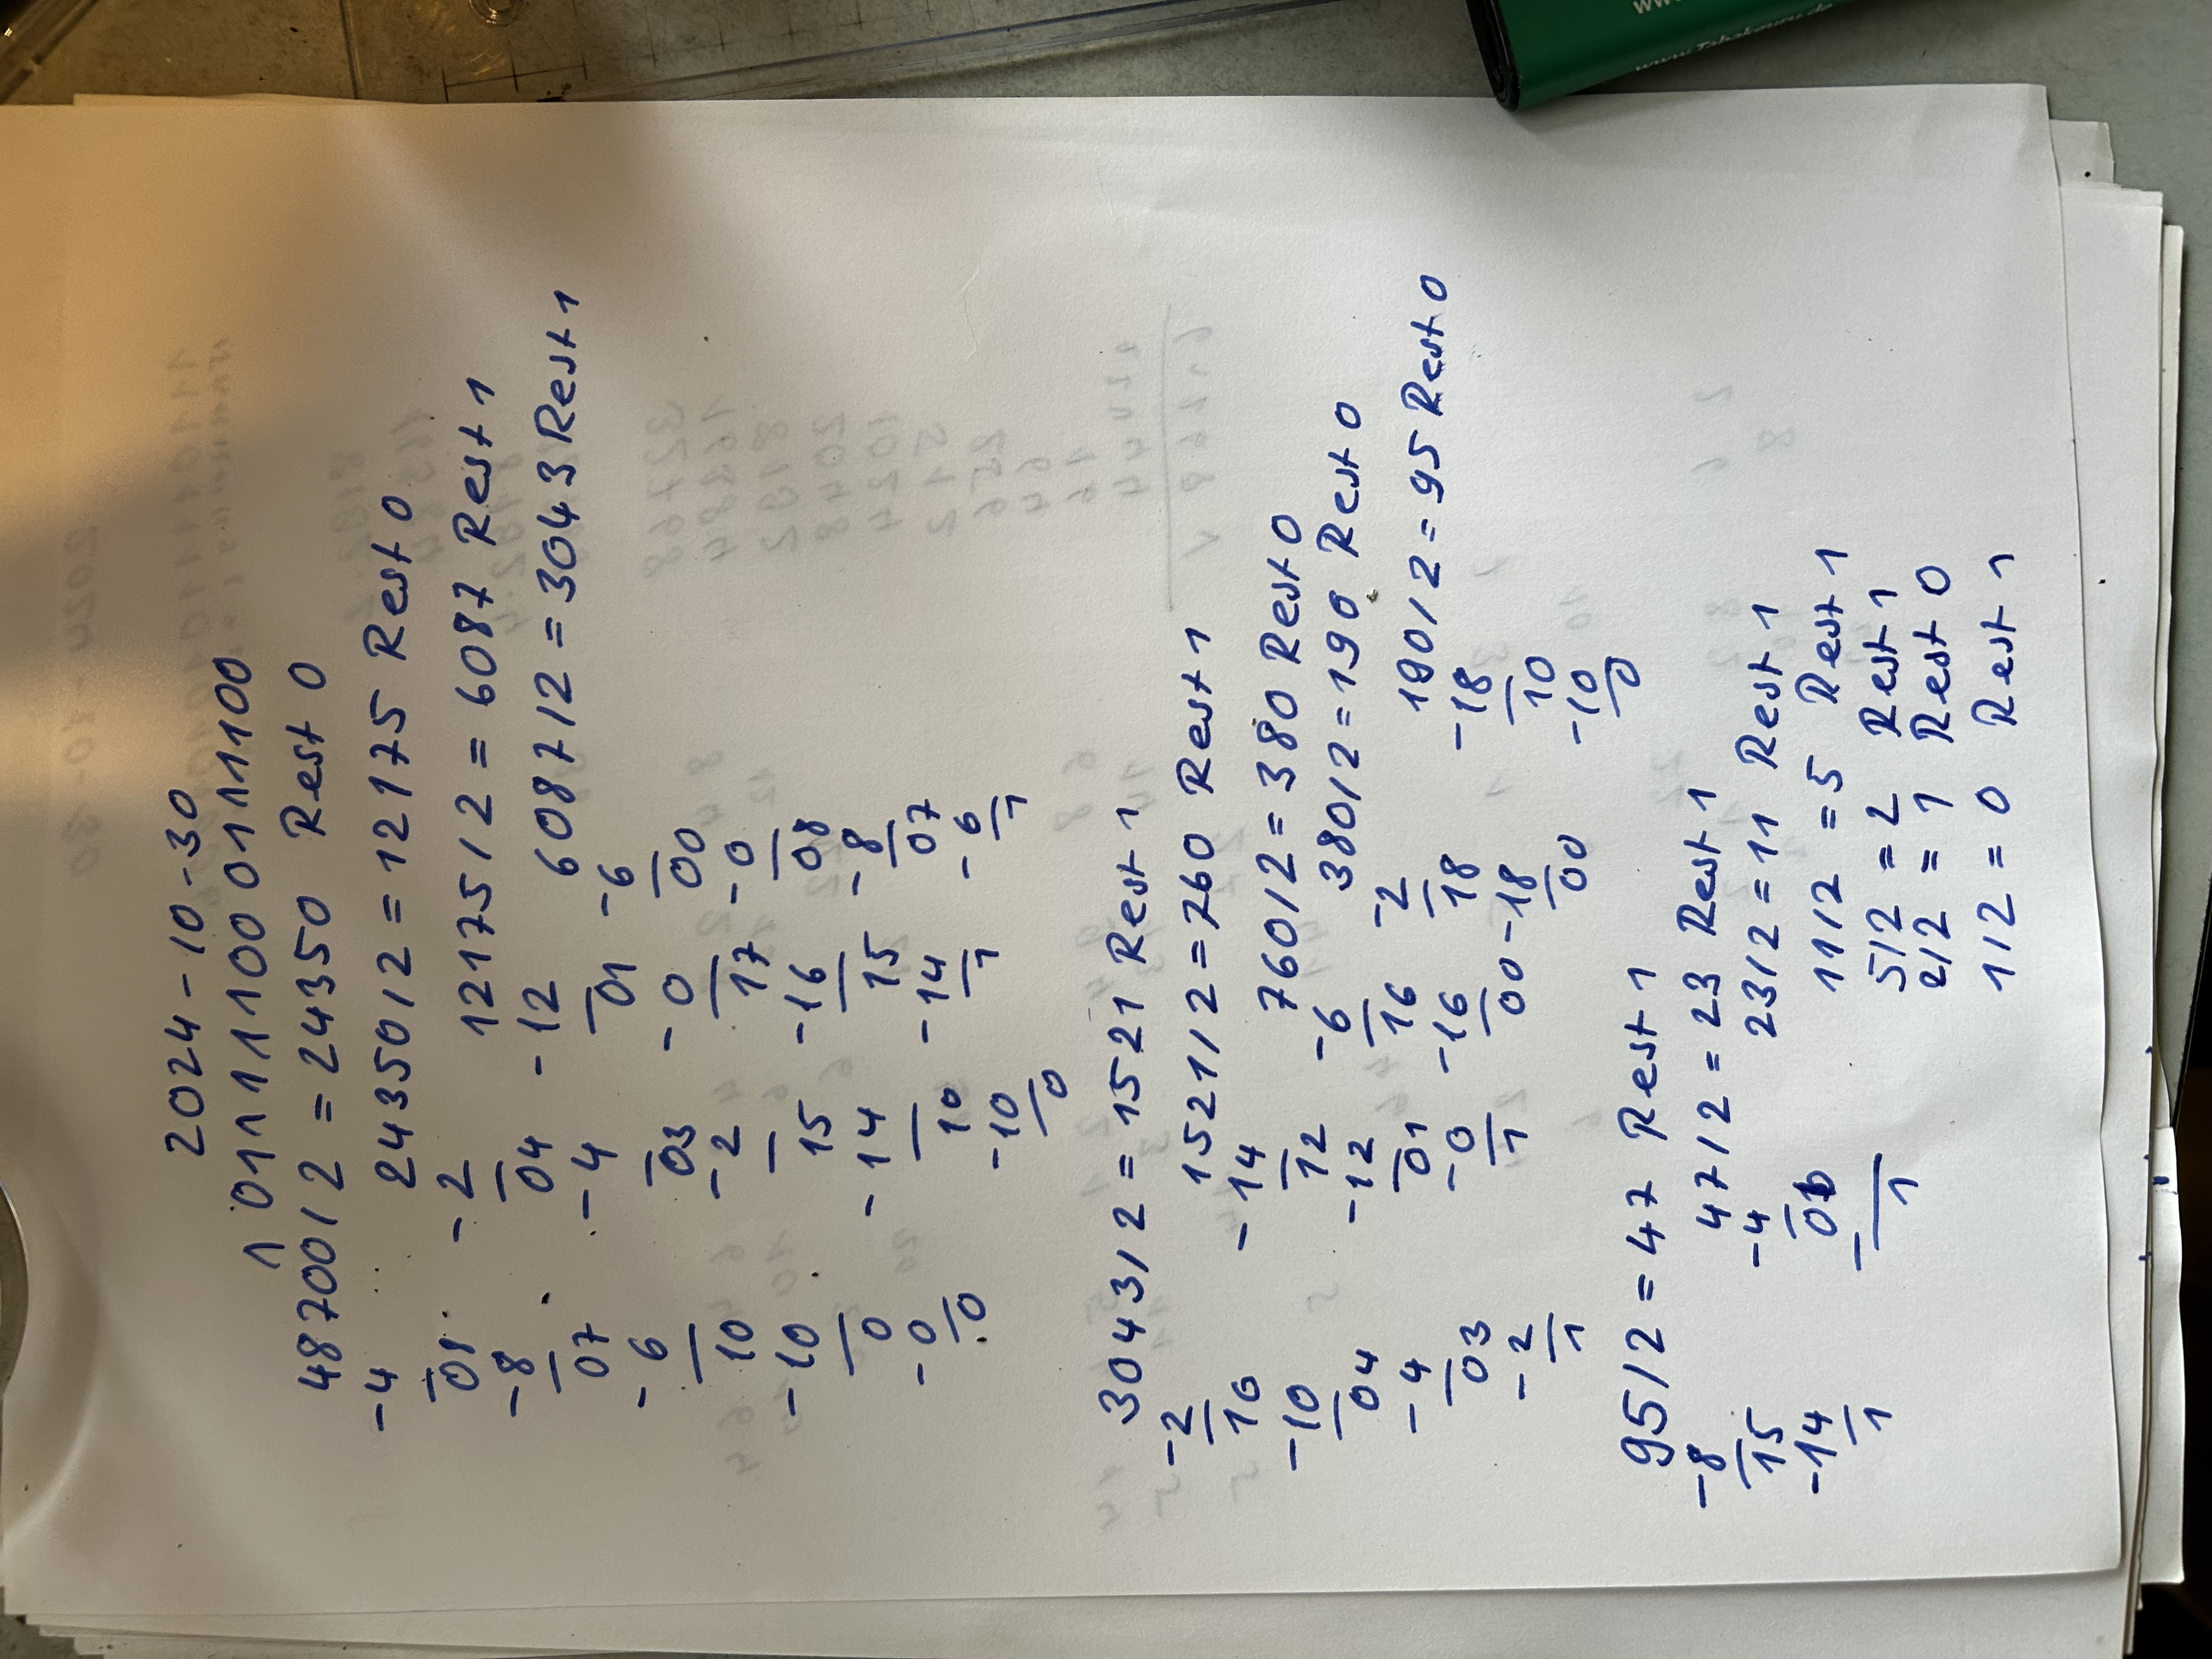 2024-10-30
1 011 1 1 100 01 11 1100
48700/2 = 24350 Rest 0
-4 24350/2 = 12175 Rest 0
08 -2 12175/2 = 6087 Rest 1
-8 04 -12 6087/2 = 3043 Rest 1
07 -4 01 -6
-6 03 -0 00
10 -2 17 -0
-10 15 -16 08
0 -14 15 -8
-0 10 -14 07
0 -10 1 -6
0 1
3043/2 = 1521 Rest 1
-2 1521/2 = 760 Rest 1
10 -14 760/2 = 380 Rest 0
-10 12 -6 380/2 = 190 Rest 0
04 -12 16 -2 190/2 = 95 Rest 0
-4 01 -16 18 -18
03 -0 00 -18 10
-2 1 00 -10
1 0
95/2 = 47 Rest 1
-8 47/2 = 23 Rest 1
15 -4 23/2 = 11 Rest 1
-14 0 11/2 = 5 Rest 1
1 - 5/2 = 2 Rest 1
1 2/2 = 1 Rest 0
1/2 = 0 Rest 1